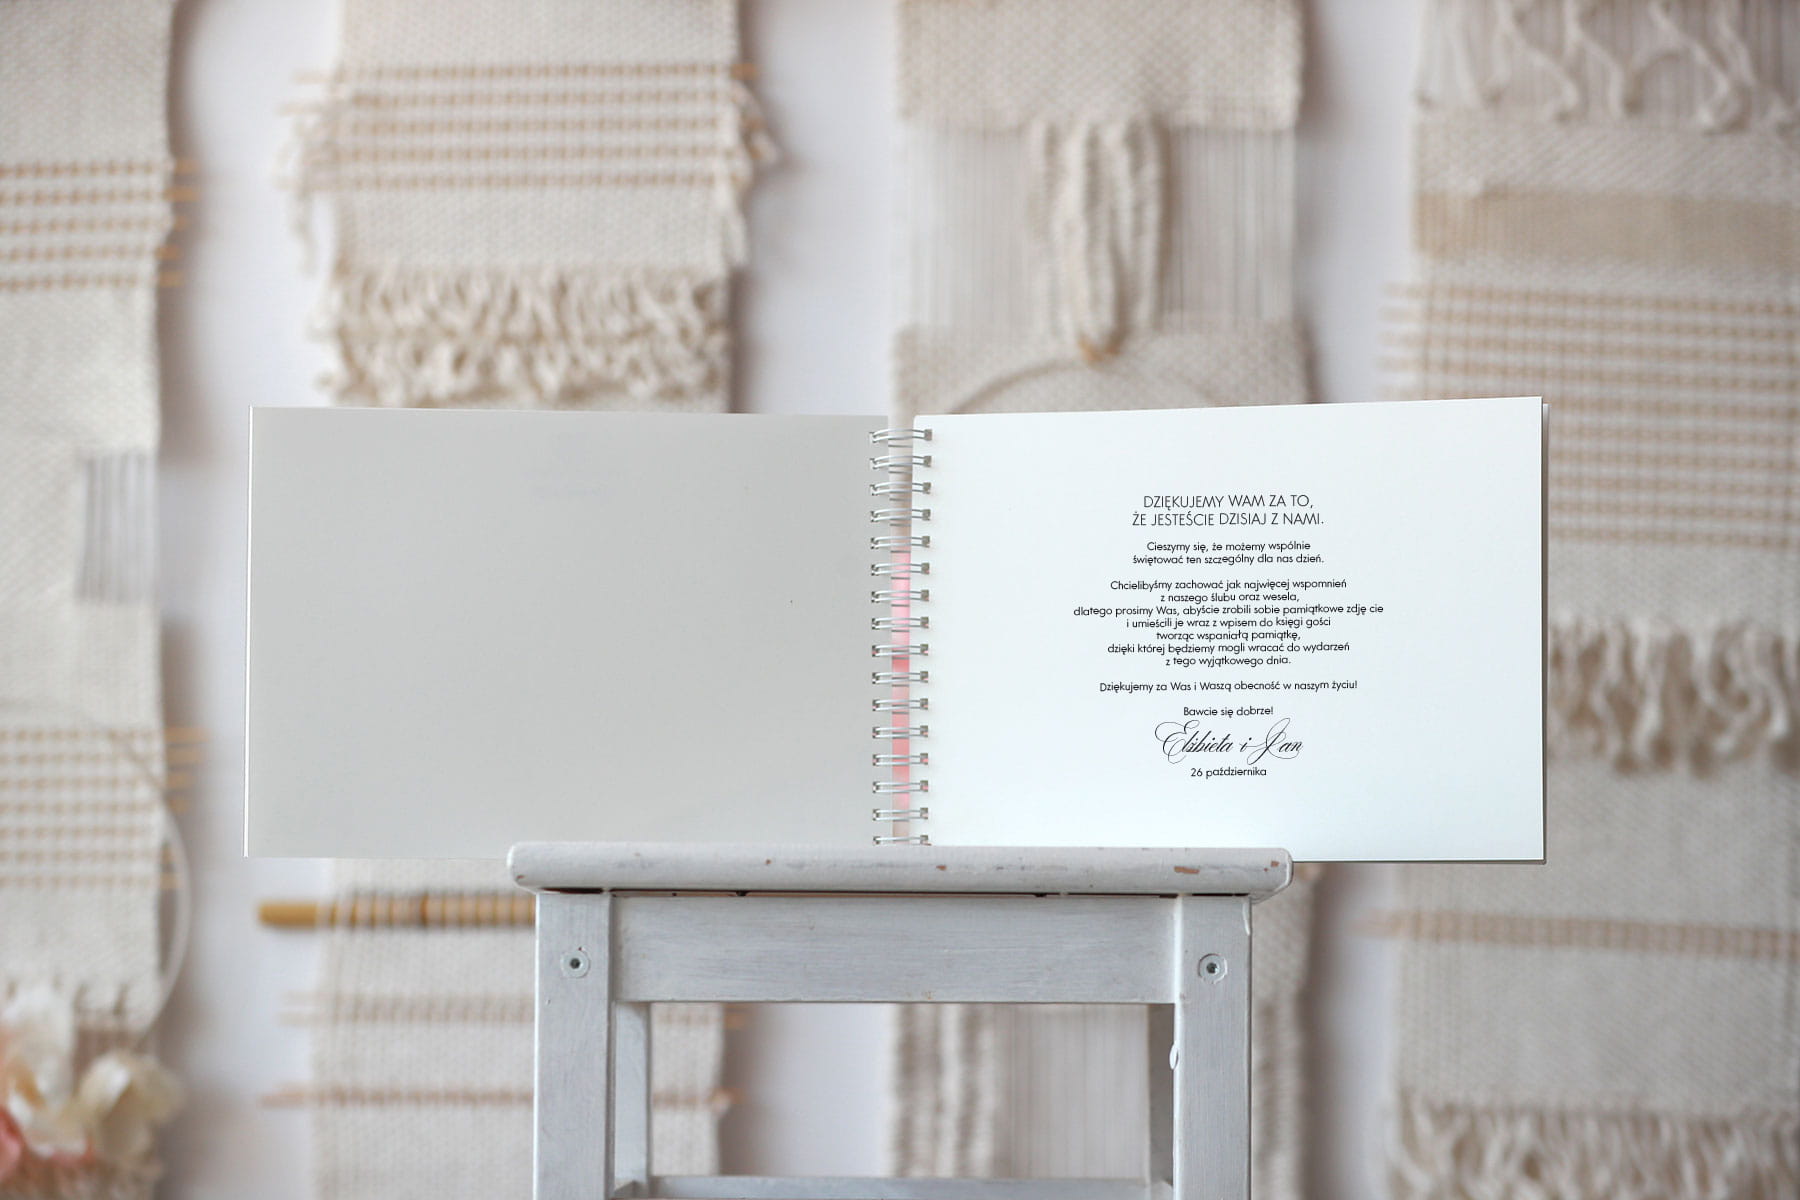 DZIĘKUJEMY WAM ZA TO,
ŻE JESTEŚCIE DZISIAJ Z NAMI.
Cieszymy się, że możemy wspólnie
świętować ten szczególny dla nas dzień.
Chcielibyśmy zachować jak najwięcej wspomnień
z naszego ślubu oraz wesela,
dlatego prosimy Was, abyście zrobili sobie pamiątkowe zdję cie
i umieścili je wraz z wpisem do księgi gości
tworząc wspaniałą pamiątkę,
dzięki której będziemy mogli wracać do wydarzeń
z tego wyjątkowego dnia.
Dziękujemy za Was i Waszą obecność w naszym życiu!
Bawcie się dobrze!
Elżbieta i Jan
26 października